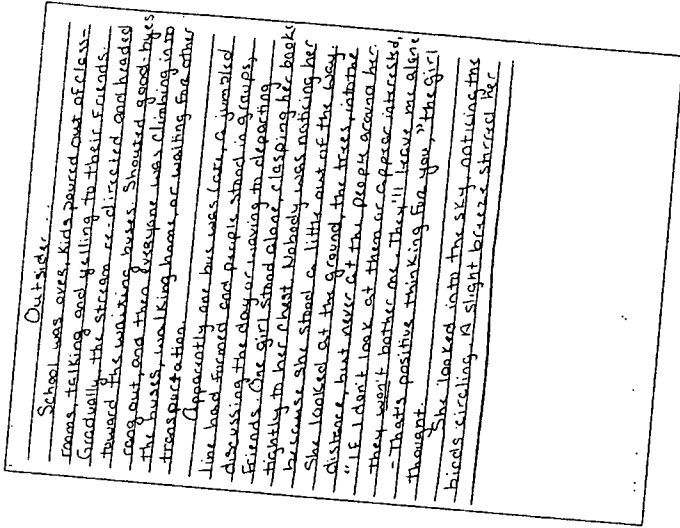 Outsider...
School was over, kids poured out of class-
rooms, talking and yelling to their friends.
Gradually the stream re-directed and headed
toward the waiting buses. Shouted good-byes
rang out, and then everyone was climbing into
the buses, walking home, or waiting for other
transportation.
Apparently one bus was late, a jumbled
line had formed and people stood in groups,
discussing the day or waving to departing
friends. One girl stood alone, clasping her books
tightly to her chest. Nobody was noticing her
because she stood a little out of the way.
She looked at the ground, the trees, into the
distance, but never at the people around her.
"If I don't look at them or appear interested,
they won't bother me. They'll leave me alone
- That's positive thinking for you," the girl
thought.
She looked into the sky, noticing the
birds circling. A slight breeze stirred her